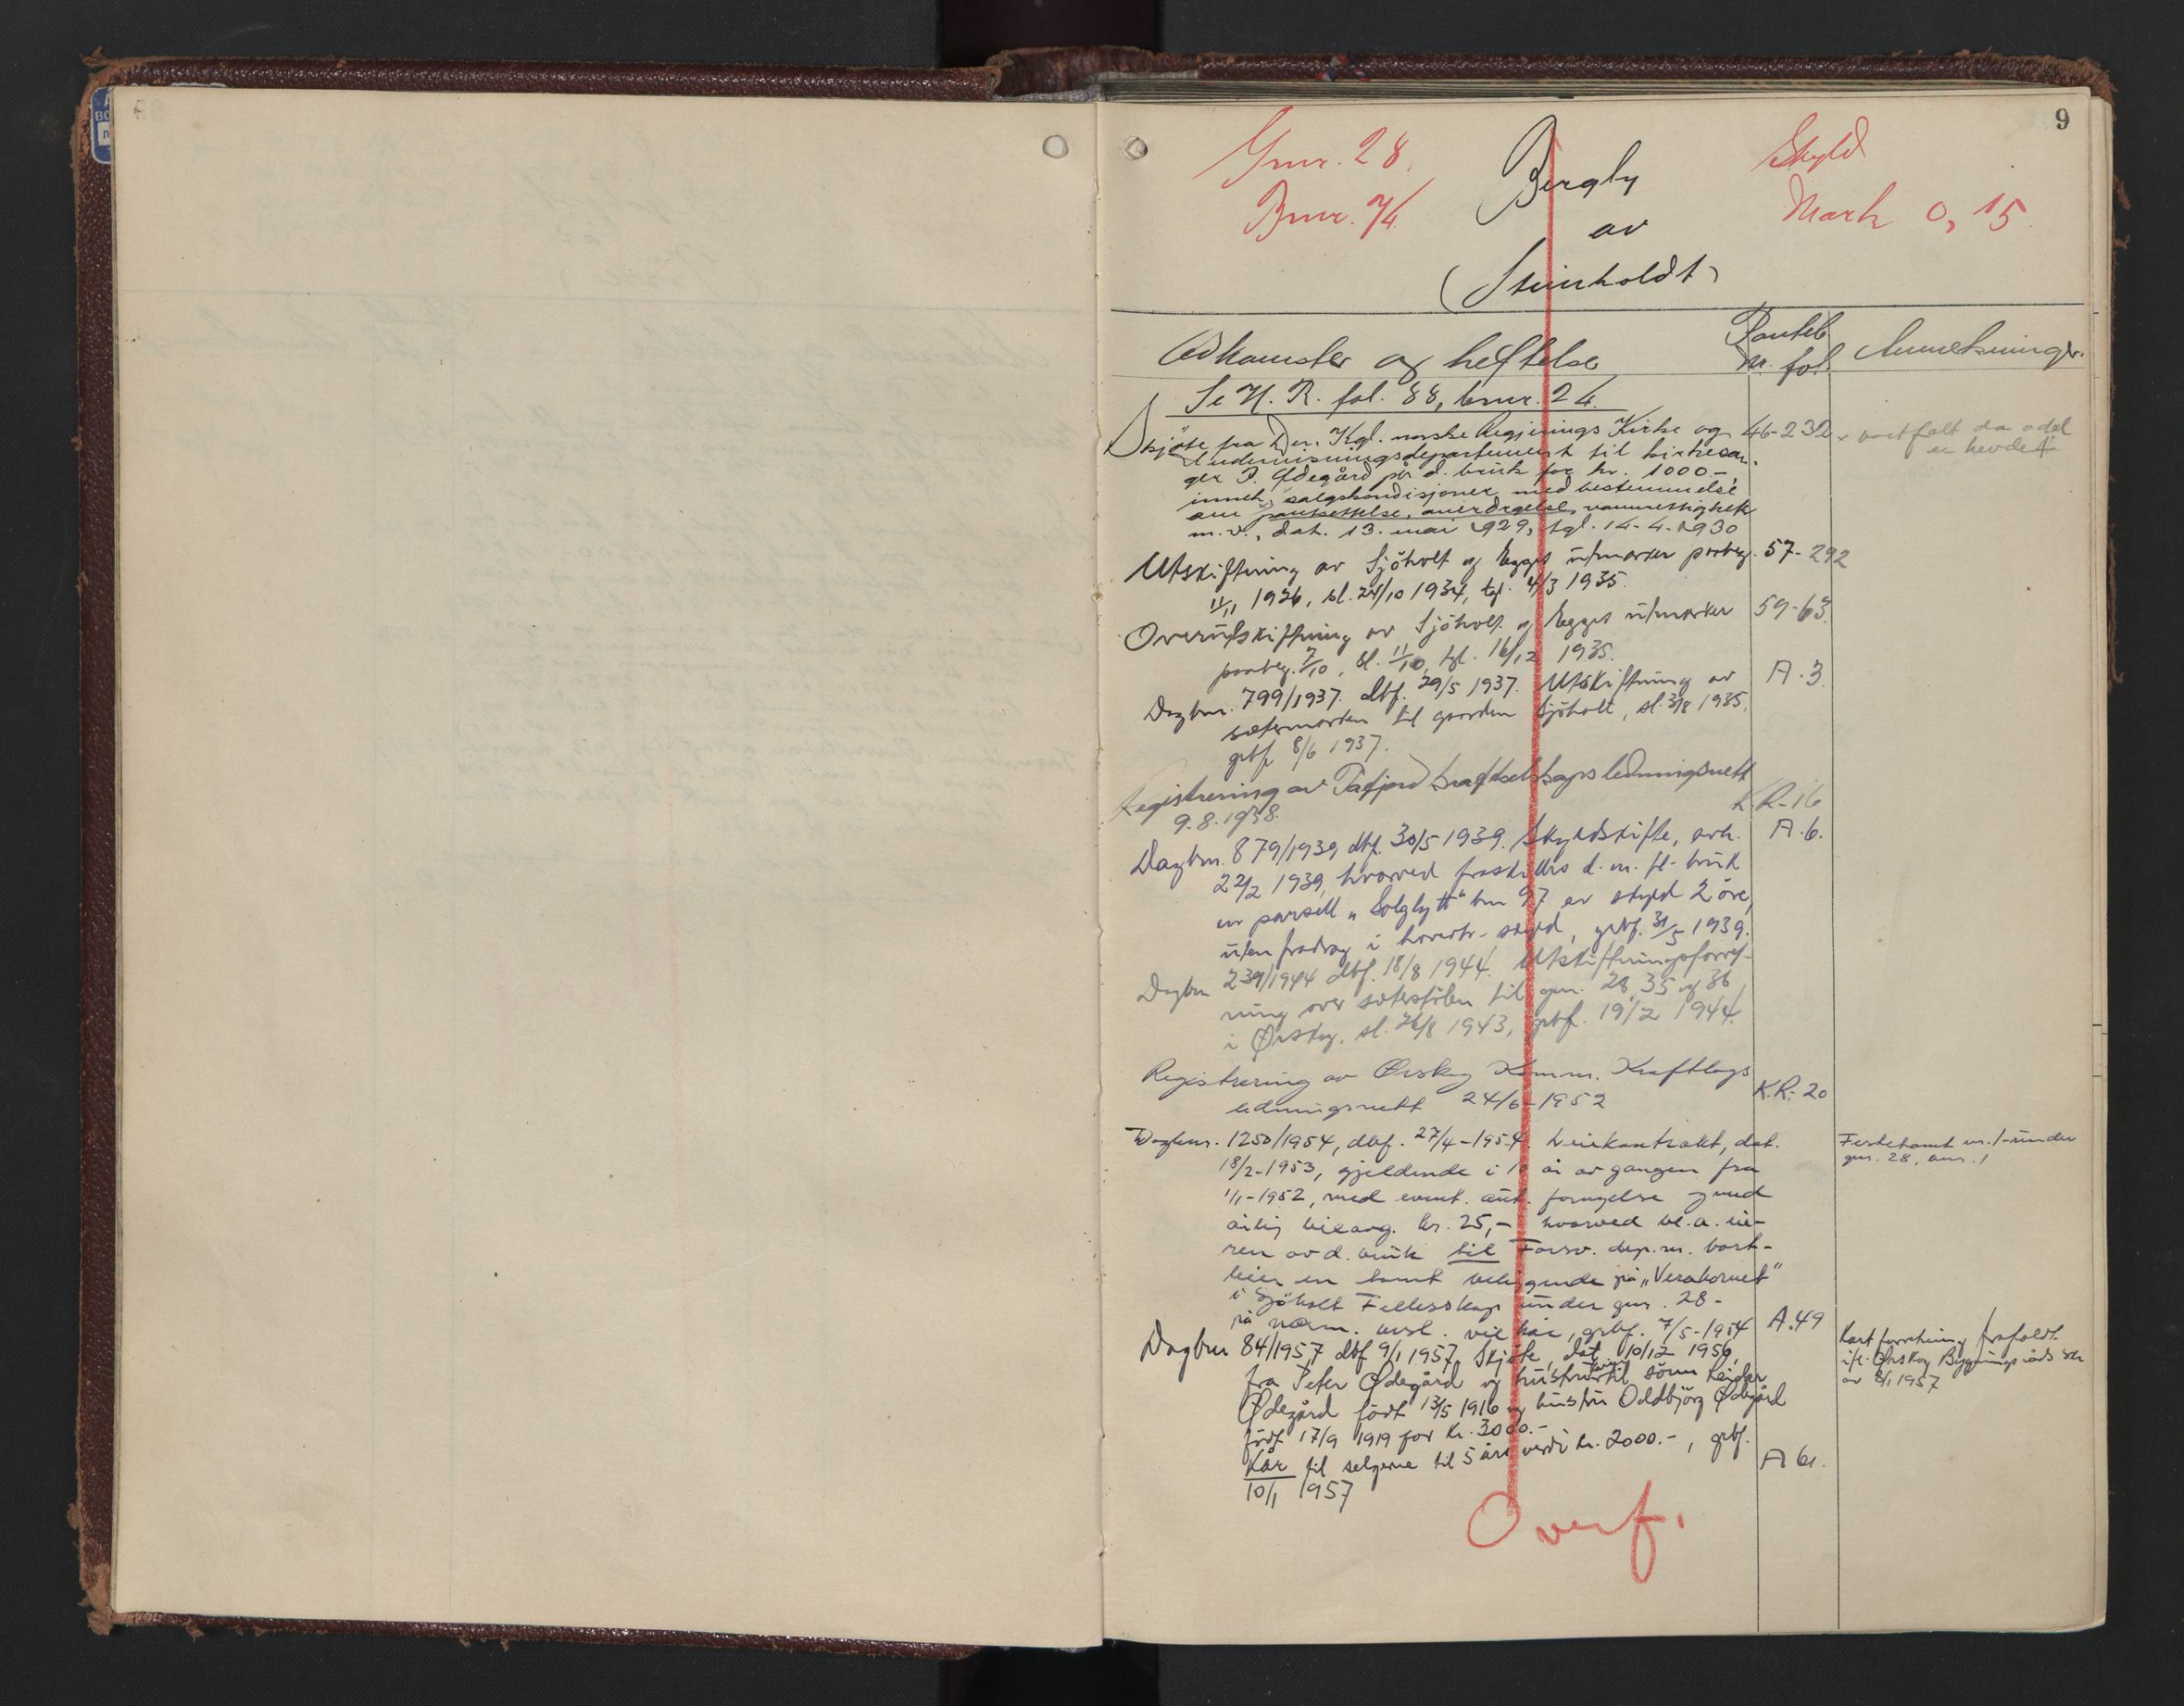 9
Gnr. 28.
Bnr. 74
Bergly
av
(Steinholdt)
Skyld
Mark 0,15.
Adkomster og heftelse
Panteb.
nr. fol.
Anmerkninger.
Se H. R. fol. 88, bnr. 24.
Skjöte fra Den Kgl. norske Regjerings Kirke og 46-232
Undervisningsdepartement til kirkesan-
ger P. Ødegård på d. bruk for kr. 1000.-,
inneh. salgskondisjoner med bestemmelse
om pantsettelse, averdragelse, vannrettigheter
m.v., dat. 13. mai 1929, tgl. 14-4-1930
bortfalt da odel
er hevdet
Utskiftning av Sjöholt og Egges utmarker paabeg. 57-292
11/11 1926, sl. 24/10 1934, tgl. 4/3 1935.
Overutskiftning av Sjöholt og Egges utmarker 59-63.
paabeg. 7/10, sl. 11/10, tgl. 16/12 1935.
Dagbnr. 799/1937. dbf. 29/5 1937. Utskiftning av A.3.
sætermarken til gaarden Sjöholt, sl. 3/8 1935,
grbf. 8/6 1937.
Registrering av Tafjord kraftselskaps ledningsnett
9.8.1938. K.R-16
Dagbnr. 879/1939 dbf. 30/5 1939. Skyldskifte, avh. A.6.
22/2 1939, hvorved fraskilles d. m. fl. bruk
en parsell "Solglytt" bnr 97 av skyld 2 öre,
uten fradrag i hovedbr. skyld, grbf. 31/5 1939.
Dagbnr 239/1944 dbf. 18/8 1944. Utskiftningsforret-
ning over sæterstölen til gnr. 28, 35 og 36
i Ørskog, sl. 26/8 1943, grbf. 19/2 1944.
Registrering av Ørskog Komm. Kraftlags
ledningsnett 24/6-1952 K.R.-20
Dagbnr. 1250/1954, dbf. 27/4-1954 Leiekontrakt, dat.
18/2-1953, gjeldende i 10 år av gangen fra
1/1-1952, med event. aut. fornyelse og med
årlig leieavg. kr. 25,- hvorved bl.a. eie-
ren av d. bruk til Forsv. dep. m. bort-
leier en tomt beliggende på "Verahornet"
i Sjöholt Fellesskap under gnr. 28-
på nærm. anf. vilkår, grbf. 7/5-1954 A.49
Festetomt nr. 1 under
gnr. 28, bnr. 1
Dagbnr 84/1957 dbf 9/1 1957. Skjöte, dat. 10/12 1956,
fra Peter Ødegård og hustru til sönn Reidar
Ødegård födt 13/5 1916 og hustru Oddbjörg Ødegård
födt 17/9 1919 for kr. 3000.-
Kår til selgerne til 5 års verdi kr. 2000.-, grbf.
10/1 1957 A 61.
ifl. Ørskog Bygningsråds skr
av 8/1 1957
Overf.